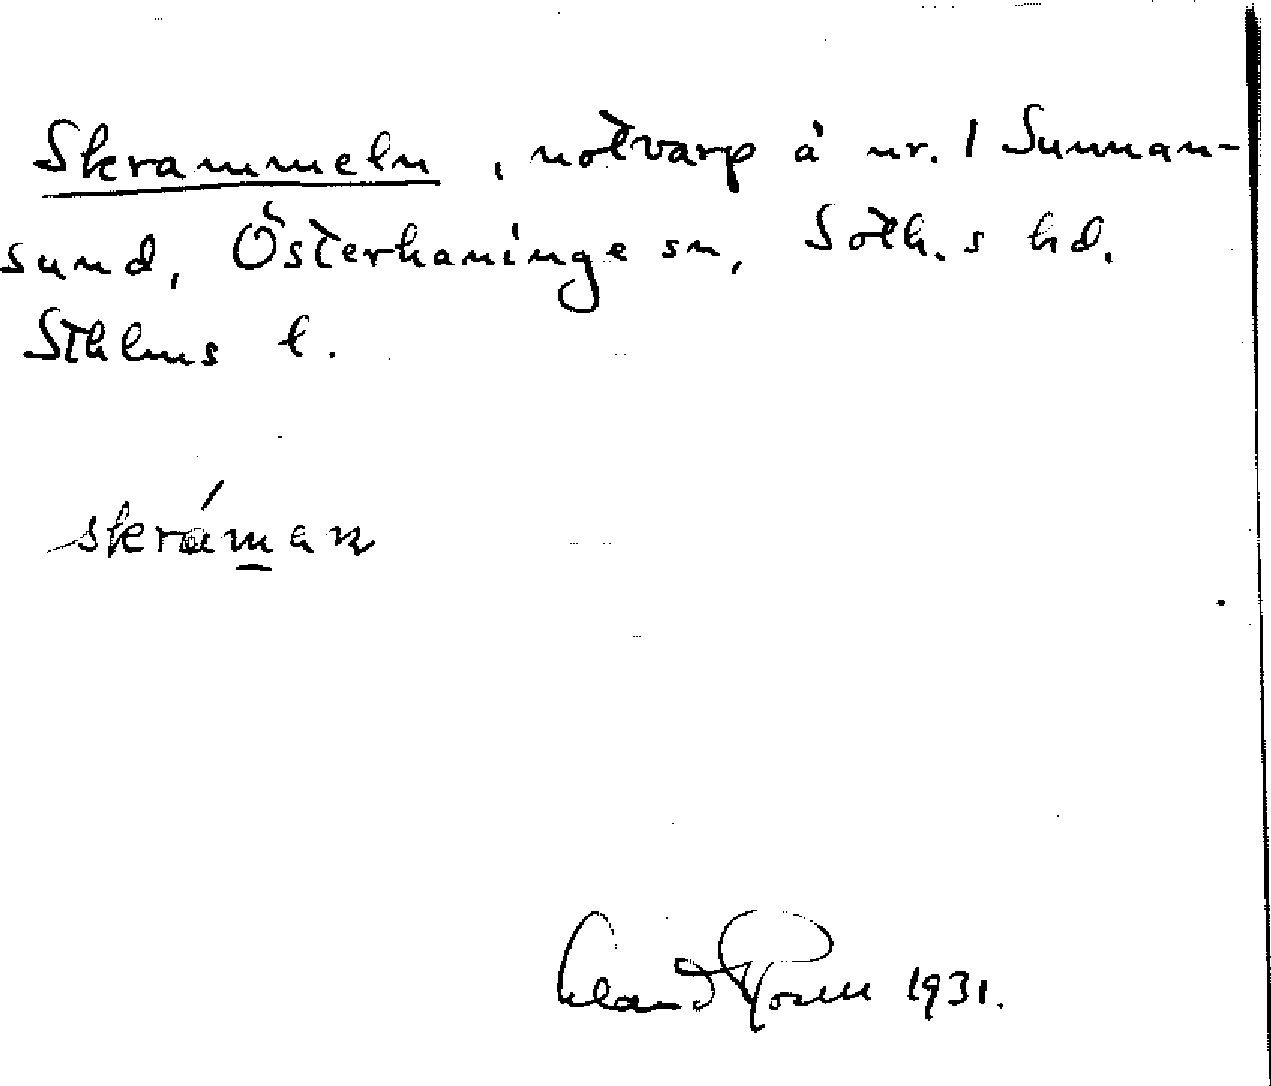 Skrammeln, notvarp å nr. 1 Sunnan-
sund, Österhaninge sn, Soth.s hd.
Sthlms l.
skráman
1931.